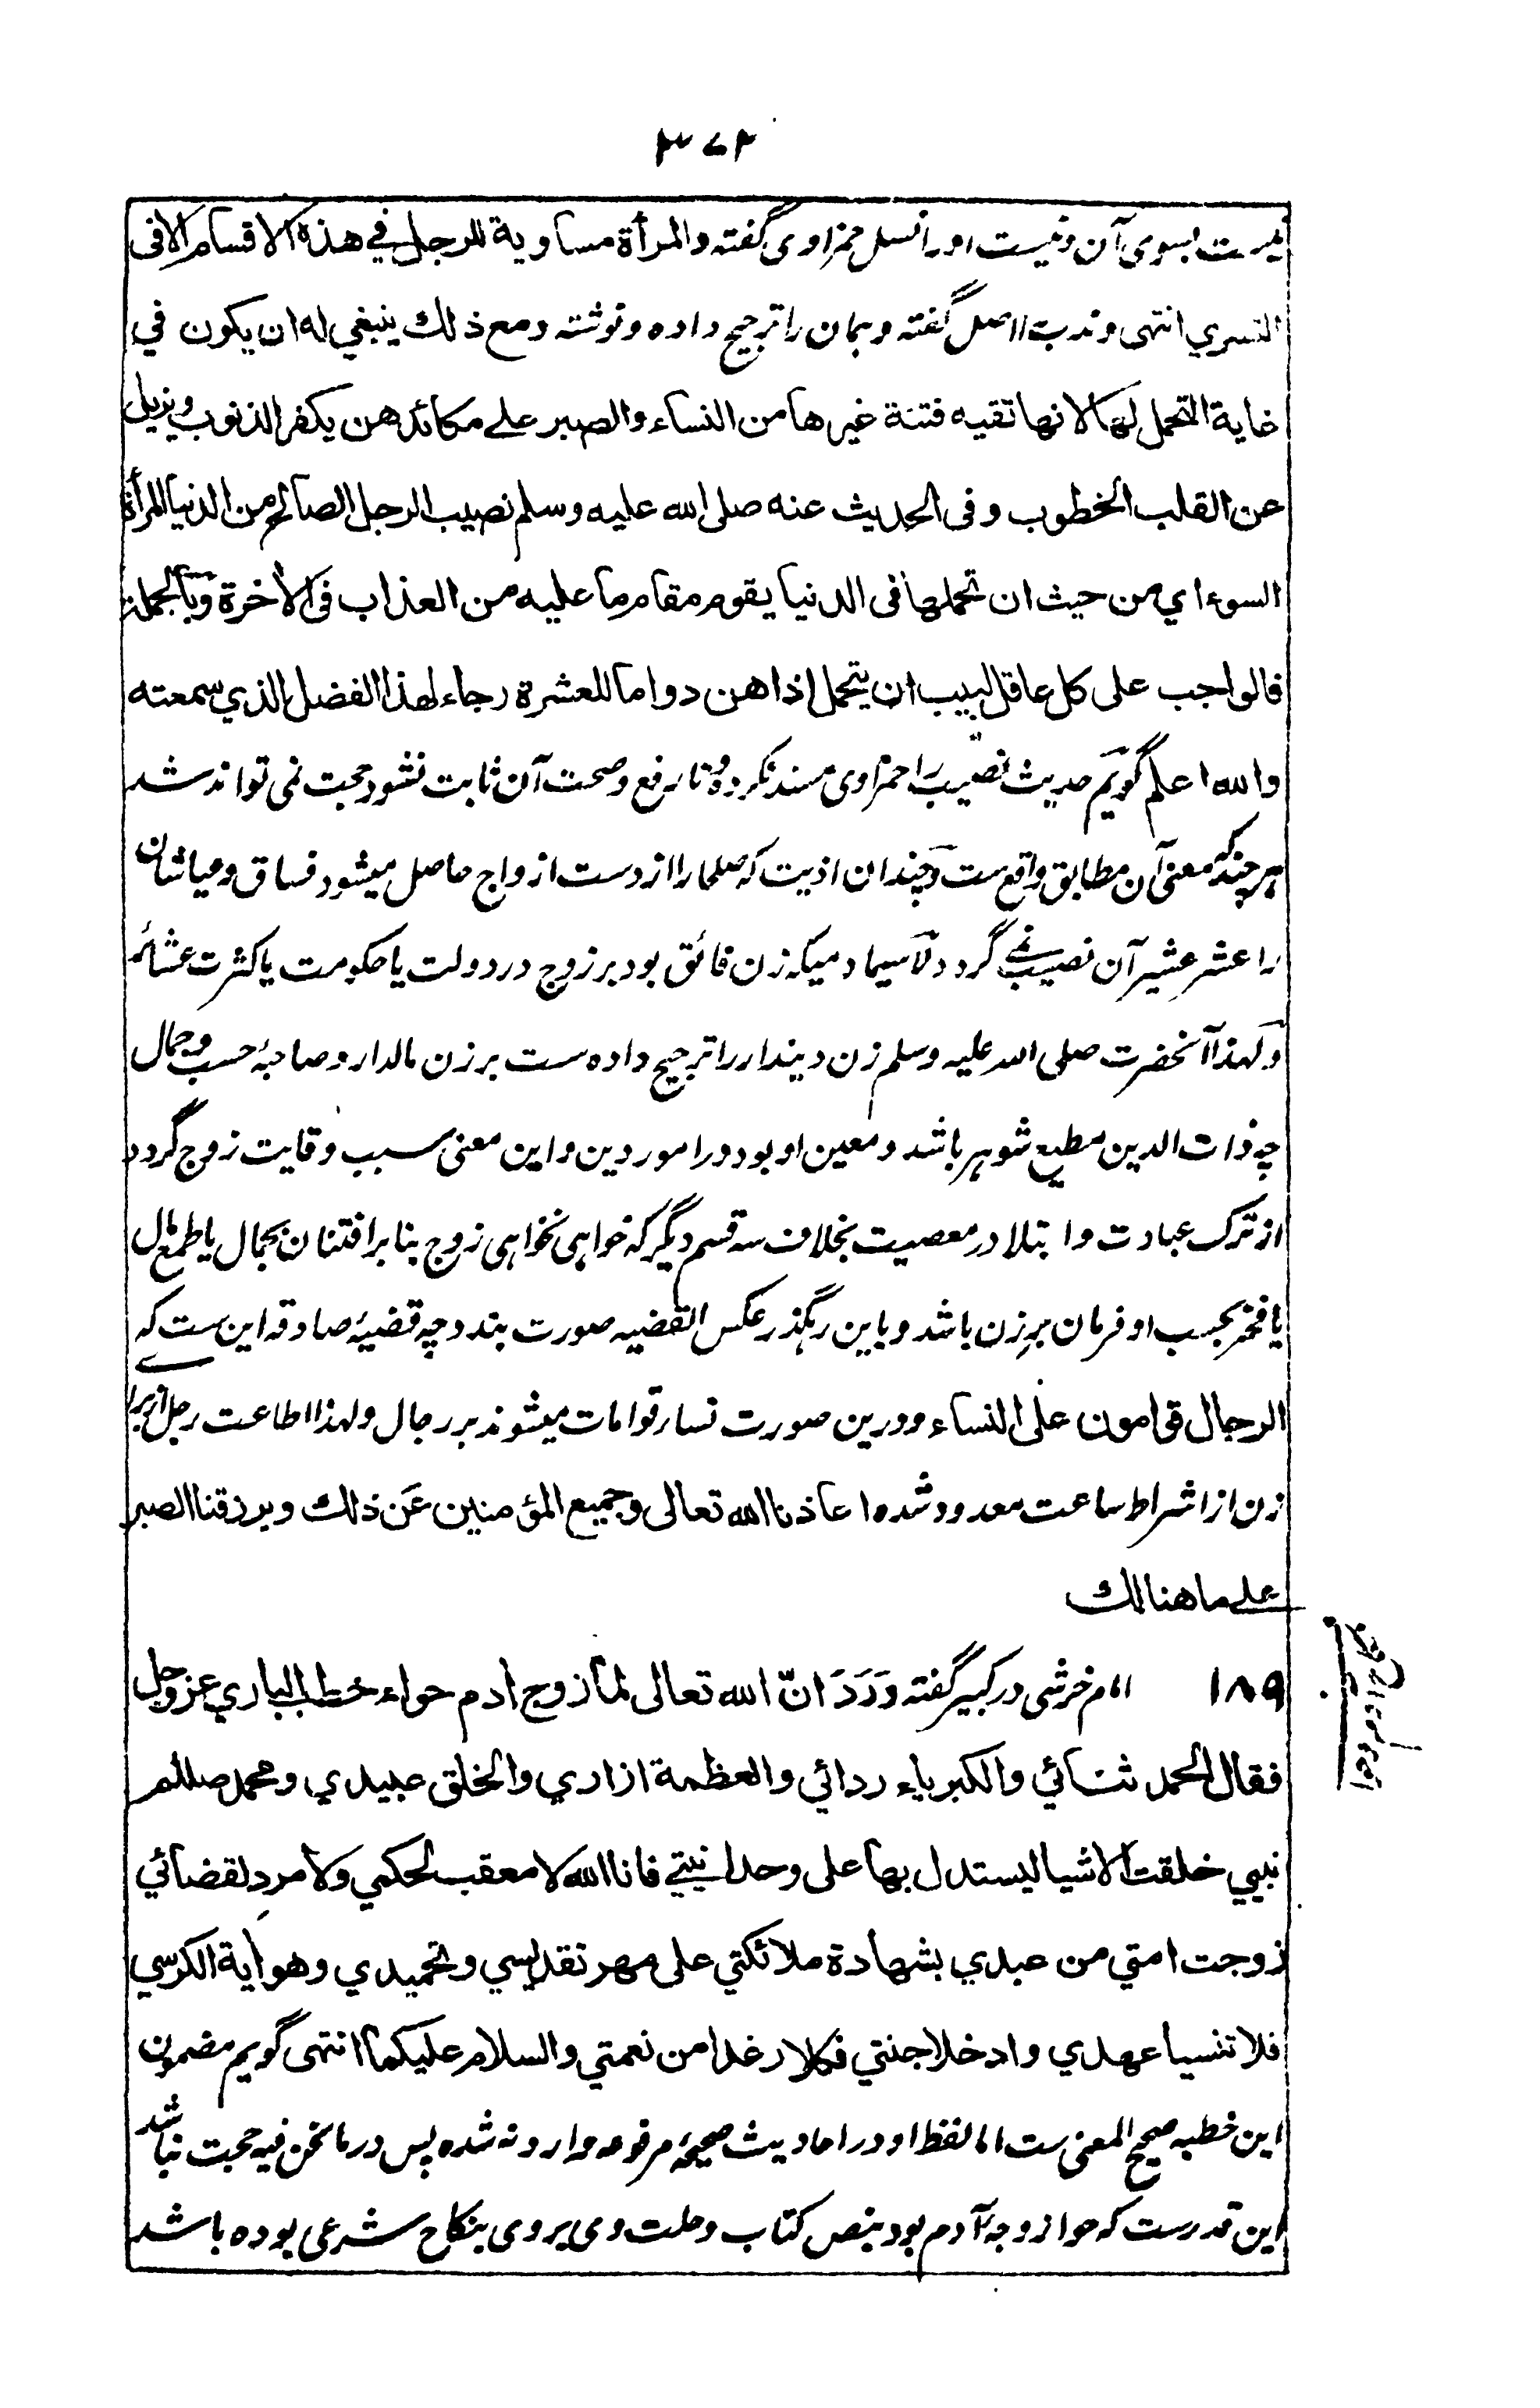 ۳۷۲
نیست بسوی آن و نیست اورا نسل حمزاوی گفته والمرأة مساوية للرجل في هذه الاقسام الا فى
التسري انتهى و ندب را اصل گفته و همان را ترجیح داده و نوشته ومع ذلك ينبغي له ان يكون في
غاية التحمل لها لانها تقيه فتنة غيرها من النساء والصبر على مكائدهن يكفر الذنوب ويزيل
عن القلب الخطوب وفى الحديث عنه صلى الله عليه وسلم نصيب الرجل الصالح من الدنيا المرأة
السوء اي من حيث ان تحملها فى الدنيا يقوم مقام ما عليه من العذاب فى الأخرة وبالجملة
فالواجب على كل عاقل لبيب ان يتحمل اذاهن دواما للعشرة رجاء لهذا الفضل الذي سمعته
والله اعلم گویم حدیث نصیب را حمزاوی مسند نکرده و تا رفع و صحت آن ثابت نشود حجت نمی تواند شد
هر چند که معنی آن مطابق واقع ست و چندان اذیت که صلحا را از دست ازواج حاصل میشود فساق و عیاشان
را عشر عشیر آن نصیب نمی گردد لاسیما دمیکه زن فائق بود بر زوج در دولت یا حکومت یا کثرت عشائر
و لهذا آنحضرت صلی الله علیه وسلم زن دیندار را ترجیح داده ست بر زن مالدار و صاحبۀ حسب و جمال
چه ذات الدین مطیع شوهر باشد و معین او بود در امور دین و این معنی سبب وقایت زوج گردد
از ترک عبادت و ابتلا در معصیت بخلاف سه قسم دیگر که خواهی نخواهی زوج بنا بر افتنان بجمال یا طمع مال
یا فخر بحسب او فرمان بر زن باشد و باین رهگذر عکس القضیه صورت بندد چه قضیۀ صادقه این ست که
الرجال قوامون على النساء و درین صورت نسا قوامات میشوند بر رجال و لهذا اطاعت رجل از برای
زن از اشراط ساعت معدود شده اعاذنا الله تعالى وجميع المؤمنين عن ذلك ويرزقنا الصبر
على ما هنالك
۱۸۹ امام خرشی در کبیر گفته وَرَدَ انّ الله تعالى لما زوج أدم حواء خطب الباري عز وجل
فقال الحمد ثنائي والكبرياء ردائي والعظمة ازاري والخلق عبيدي ومحمد صللم
نبيي خلقت الاشيا ليستدل بها على وحدانيتي فانا الله لا معقب لحكمي ولا مرد لقضائي
زوجت امتي من عبدي بشهادة ملائكتي على مهر تقديسي وتحميدي وهو أية الكرسي
فلا تنسيا عهدي وادخلا جنتي فكلا رغدا من نعمتي والسلام عليكما انتهى گویم مضمون
این خطبه صحیح المعنی ست اما لفظ او در احادیث صحیحۀ مرفوعه وارد نه شده پس در ما نحن فیه حجت نباشد
این قدر ست که حوا زوجۀ آدم بود بنص کتاب و حلت وی بروی بنکاح شرعی بوده باشد